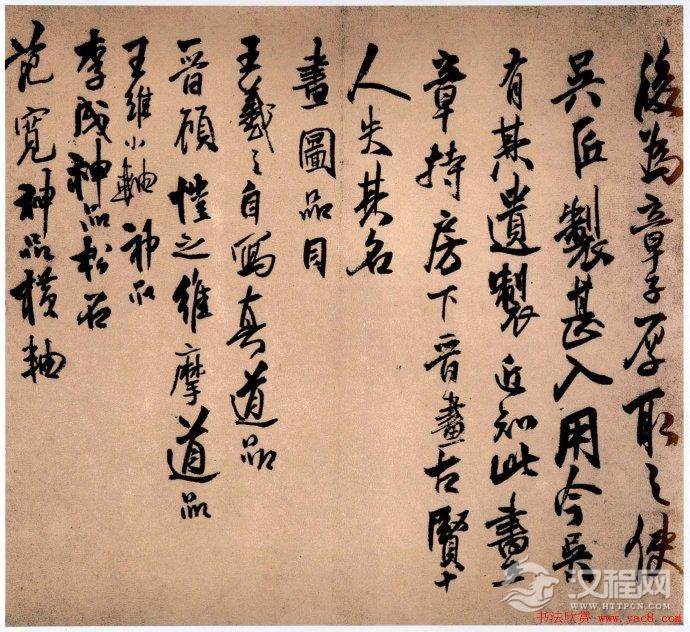 後為章子厚取之使
吳匠製甚入用今吳
有其遺製近知此書
章持房下晉畫古賢十
人失其名
畫圖品目
王羲之自寫真道品
晉顧愷之維摩道品
王維小軸神品
李成神品松石
范寬神品橫軸
汉程网
WWW.HTTPCN.COM
书法欣赏 www.yac8.com